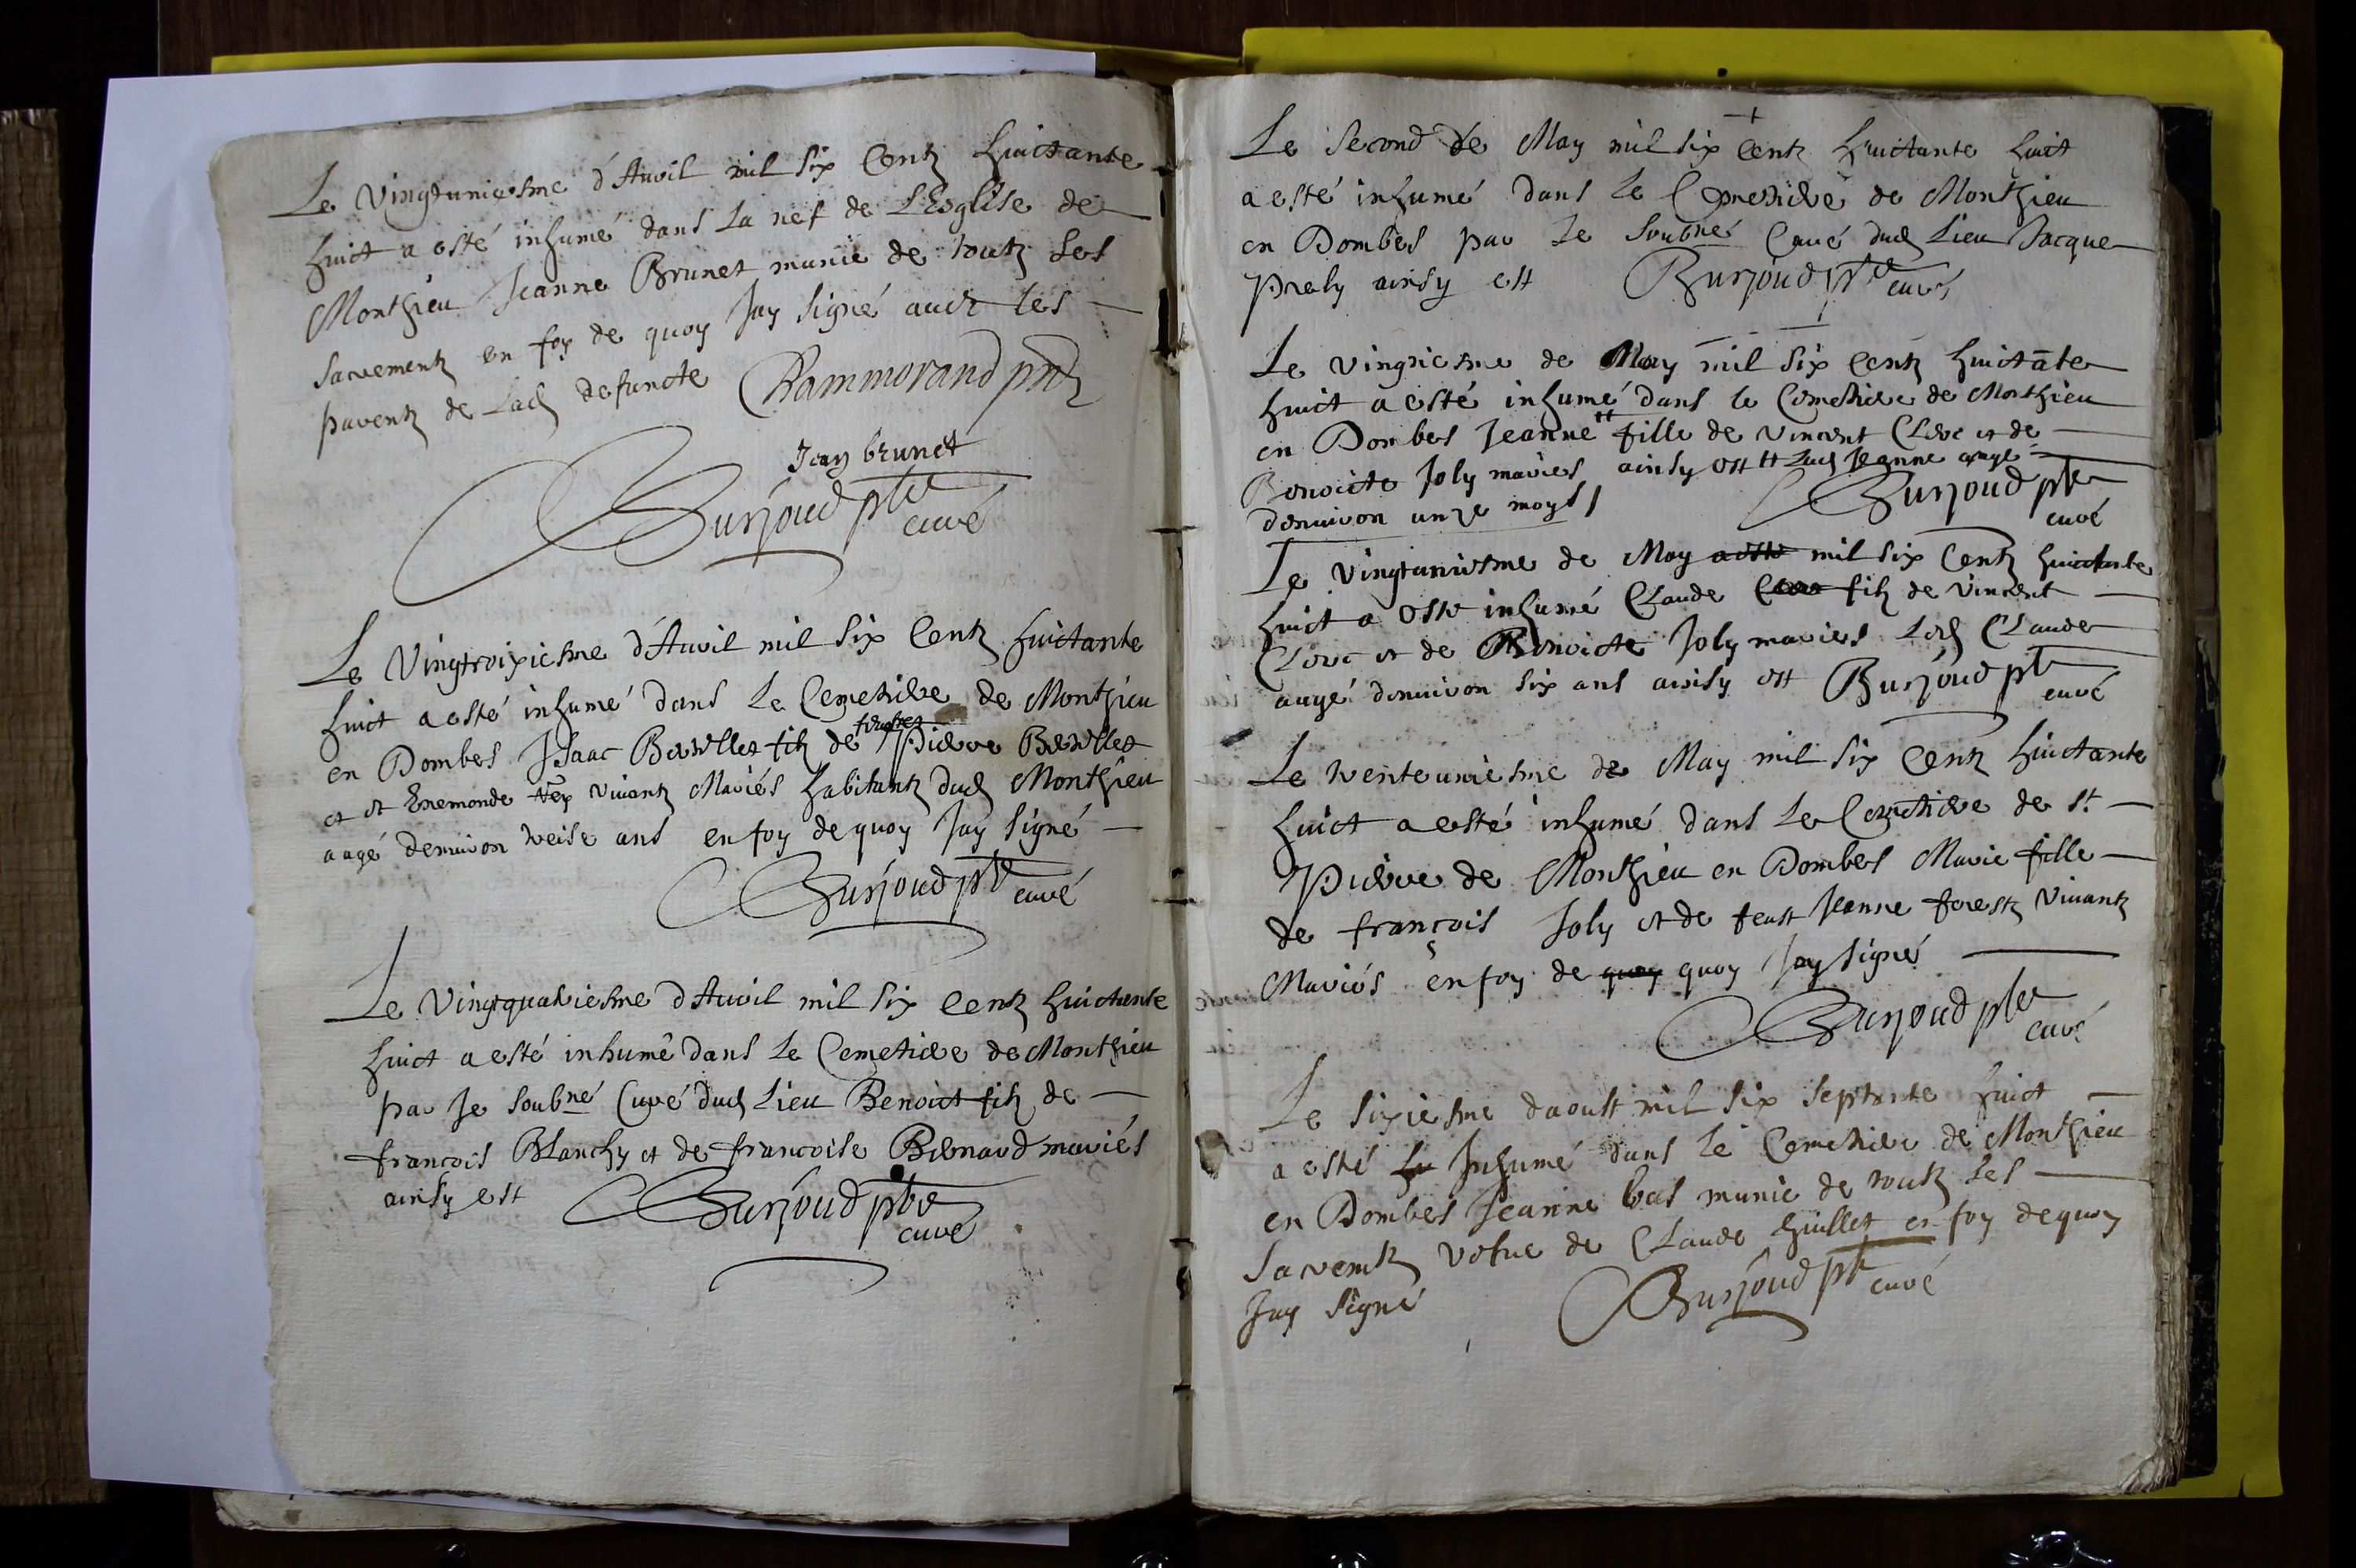 Le vingtuniesme d'Avril mil six Centz huictante
huict a esté inhumé dans la nef de L'Esglise de
Monthieu Jeanne Brunet munie de toutz les
sacrementz en foy de quoy Jay signé avec les
parentz de Lad defuncte Rammorand pnt
Jean brunet
Burjoud pbre
curé
Le Vingtroixiesme d'Avril mil six Centz huictante
huict a esté inhumé dans le Cemetiere de Monthieu
en Dombes Isaac filz de feust Pierre
et et Enemonde vivantz Mariés habitantz dud Monthieu
aagé denviron treise ans en foy de quoy Jay signé
Burjoud pbre curé
Le Vingtquatriesme d'Avril mil six centz huictante
huict a esté inhumé dans le Cemetiere de Monthieu
par Je soubné Curé dud Lieu Benoict filz de
françois Blanchy et de francoise Bernard mariés
ainsy est Burjoud pbre
curé
Le second de May mil six Centz huictante huict
a esté inhumé dans le Cemetiere de Monthieu
en Dombes par Le soubné Curé dud Lieu Jacque
Praly ainsy est Burjoud pbre curé
Le vingtiesme de May mil six Centz huictāte
huict a esté inhumé dans le Cemetiere de Monthieu
en Dombes Jeanne ++ fille de vincent Clerc et de
Benoicte Joly mariés ainsy est ++ Lad Jeanne aagé
denviron unze moys Burjoud pbre
curé
Le vingtuniesme de May a esté mil six Centz huictante
huict a esté inhumé Claude Clerc filz de vincent
Clerc et de Benoicte Joly mariés Led Claude
aagé denviron six ans ainsy est Burjoud pbre
curé
Le trenteuniesme de May mil six Centz huictante
huict a esté inhumé dans le Cemetiere de St
Pierre de Monthieu en Dombes Marie fille
de françois Joly et de feust Jeanne forestz vivantz
Mariés en foy de quoy quoy Jay signé
Burjoud pbre
curé
Le sixiesme daoust mil six septante huict
a esté Inhumé dans le Cemetiere de Monthieu
en Dombes Jeanne bas munie de toutz les
sacremtz vefue de Claude huillet en foy de quoy
Jay signé Burjoud pbre curé